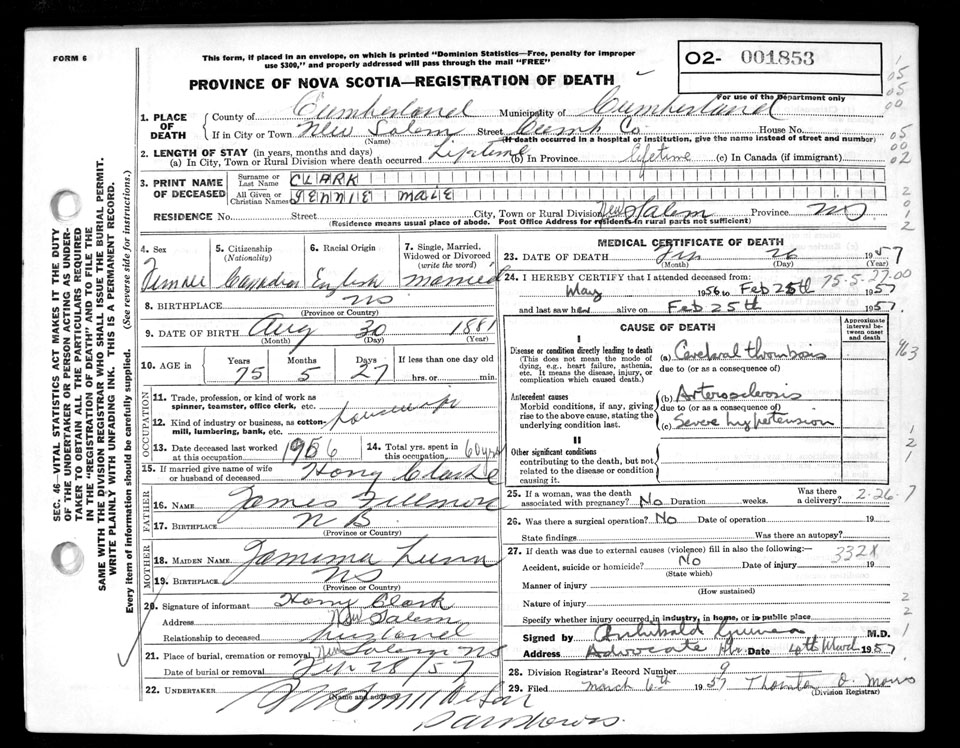 FORM 6
This form, if placed in an envelope, on which is printed "Dominion Statistics—Free, penalty for improper
use $300," and properly addressed will pass through the mail "FREE"
02- 001853
For use of the Department only
PROVINCE OF NOVA SCOTIA—REGISTRATION OF DEATH
1. PLACE OF DEATH
County of Cumberland Municipality of Cumberland
If in City or Town New Salem Street Cumb Co. House No.
(Name) (If death occurred in a hospital or institution, give the name instead of street and number)
2. LENGTH OF STAY (in years, months and days)
(a) In City, Town or Rural Division where death occurred Lifetime (b) In Province lifetime (c) In Canada (if immigrant)
3. PRINT NAME OF DECEASED
Surname or Last Name CLARK
All Given or Christian Names JENNIE MALE
RESIDENCE No. Street City, Town or Rural Division New Salem Province NS
(Residence means usual place of abode. Post Office Address for residents in rural parts not sufficient)
4. Sex 5. Citizenship (Nationality) 6. Racial Origin 7. Single, Married, Widowed or Divorced (write the word)
Female Canadian English married
8. BIRTHPLACE NS
(Province or Country)
9. DATE OF BIRTH Aug 30 1881
(Month) (Day) (Year)
10. AGE in Years Months Days If less than one day old
75 5 27 hrs. or min.
OCCUPATION
11. Trade, profession, or kind of work as spinner, teamster, office clerk, etc. housewife
12. Kind of industry or business, as cotton-mill, lumbering, bank, etc.
13. Date deceased last worked at this occupation 1956 14. Total yrs. spent in this occupation 60 yrs
15. If married give name of wife or husband of deceased Harry Clarke
FATHER
16. NAME James Fillmore
17. BIRTHPLACE N B
(Province or Country)
MOTHER
18. MAIDEN NAME Jamima
19. BIRTHPLACE NS
(Province or Country)
20. Signature of informant Harry Clark
Address New Salem
Relationship to deceased husband
21. Place of burial, cremation or removal New Salem NS
Date of burial or removal Feb 28/57
22. UNDERTAKER
(Name and address)
MEDICAL CERTIFICATE OF DEATH
23. DATE OF DEATH Feb 26 1957
(Month) (Day) (Year)
24. I HEREBY CERTIFY that I attended deceased from: 75-5-27-00
May 1956 to Feb 25th 1957
and last saw her alive on Feb 25th 1957.
CAUSE OF DEATH
Approximate interval between onset and death
I
Disease or condition directly leading to death (a) Cerebral thrombosis
(This does not mean the mode of dying, e.g., heart failure, asthenia, etc. It means the disease, injury, or complication which caused death.)
due to (or as a consequence of)
Antecedent causes
Morbid conditions, if any, giving rise to the above cause, stating the underlying condition last.
(b) Arterosclerosis
due to (or as a consequence of)
(c) Severe hypertension
II
Other significant conditions
contributing to the death, but not related to the disease or condition causing it.
25. If a woman, was the death associated with pregnancy? No Duration weeks. Was there a delivery? 2-26-7
26. Was there a surgical operation? No Date of operation 19
State findings Was there an autopsy?
27. If death was due to external causes (violence) fill in also the following:— 332X
Accident, suicide or homicide? No Date of injury 19
(State which)
Manner of injury
(How sustained)
Nature of injury
Specify whether injury occurred in industry, in home, or in public place
Signed by Archibald M.D.
Address Advocate Hbr. Date 4th March 1957
28. Division Registrar's Record Number 9
29. Filed March 6th 1957 Thornton O. Morris
(Division Registrar)
SEC. 46 – VITAL STATISTICS ACT MAKES IT THE DUTY
OF THE UNDERTAKER OR PERSON ACTING AS UNDER-
TAKER TO OBTAIN ALL THE PARTICULARS REQUIRED
IN THE "REGISTRATION OF DEATH" AND TO FILE THE
SAME WITH THE DIVISION REGISTRAR WHO SHALL ISSUE THE BURIAL PERMIT.
WRITE PLAINLY WITH UNFADING INK. THIS IS A PERMANENT RECORD.
Every item of information should be carefully supplied. (See reverse side for instructions.)